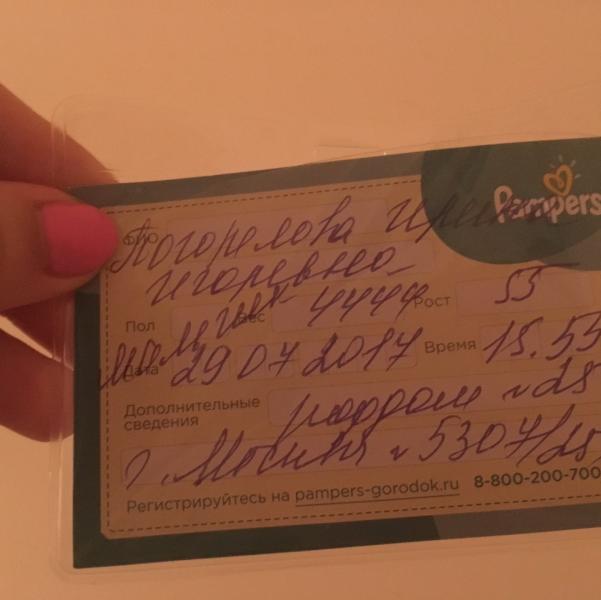 Pampers
ФИО Погорелова Ирина
Игоревна
Пол мальчик Вес 4444 Рост 55
Дата 29 07 2017 Время 15.55
Дополнительные сведения роддом №25
г. Москва №5307/25
Регистрируйтесь на pampers-gorodok.ru 8-800-200-700